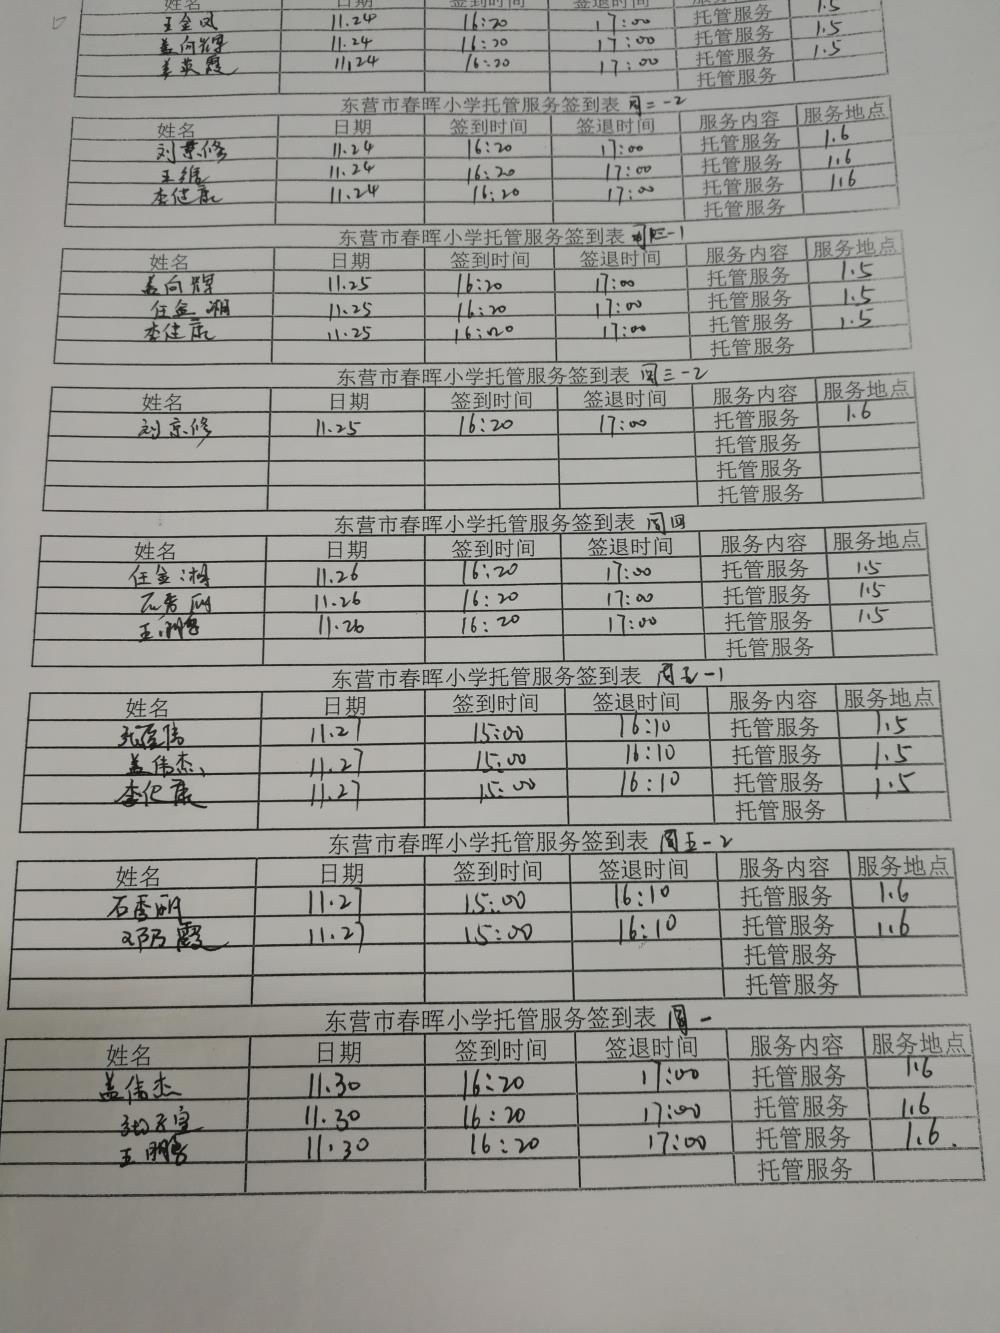 姓名 日期 签到时间 签退时间
王金凤 11.24 16:20 17:00 托管服务 1.5
盖向辉 11.24 16:20 17:00 托管服务 1.5
姜英霞 11.24 16:20 17:00 托管服务 1.5
托管服务
东营市春晖小学托管服务签到表 周二-2
姓名 日期 签到时间 签退时间 服务内容 服务地点
刘景修 11.24 16:20 17:00 托管服务 1.6
11.24 16:20 17:00 托管服务 1.6
李健康 11.24 16:20 17:00 托管服务 1.6
托管服务
东营市春晖小学托管服务签到表 周三-1
姓名 日期 签到时间 签退时间 服务内容 服务地点
盖向辉 11.25 16:20 17:00 托管服务 1.5
任金湘 11.25 16:20 17:00 托管服务 1.5
李健康 11.25 16:20 17:00 托管服务 1.5
托管服务
东营市春晖小学托管服务签到表 周三-2
姓名 日期 签到时间 签退时间 服务内容 服务地点
刘景修 11.25 16:20 17:00 托管服务 1.6
托管服务
托管服务
托管服务
东营市春晖小学托管服务签到表 周四
姓名 日期 签到时间 签退时间 服务内容 服务地点
任金湘 11.26 16:20 17:00 托管服务 1.5
石秀丽 11.26 16:20 17:00 托管服务 1.5
王鹏 11.26 16:20 17:00 托管服务 1.5
托管服务
东营市春晖小学托管服务签到表 周五-1
姓名 日期 签到时间 签退时间 服务内容 服务地点
11.27 15:00 16:10 托管服务 1.5
盖伟杰 11.27 15:00 16:10 托管服务 1.5
李健康 11.27 15:00 16:10 托管服务 1.5
托管服务
东营市春晖小学托管服务签到表 周五-2
姓名 日期 签到时间 签退时间 服务内容 服务地点
石秀丽 11.27 15:00 16:10 托管服务 1.6
邓霞 11.27 15:00 16:10 托管服务 1.6
托管服务
托管服务
东营市春晖小学托管服务签到表 周一
姓名 日期 签到时间 签退时间 服务内容 服务地点
盖伟杰 11.30 16:20 17:00 托管服务 1.6
11.30 16:20 17:00 托管服务 1.6
王鹏 11.30 16:20 17:00 托管服务 1.6.
托管服务